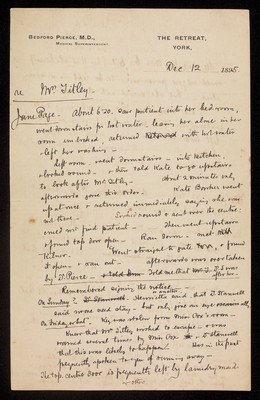 BEDFORD PIERCE, M.D.,
MEDICAL SUPERINTENDENT
THE RETREAT,
YORK,
Dec 12 1895.
re Mrs Titley.
Jane Page. About 6.20. saw patient into her bed room,
went downstairs for hot water, leaving her alone in her
room unlocked, returned with hot water
& left her washing -
left room, went downstairs - into kitchen,
& looked round - & then told Kate to go upstairs
to look after Mrs Titley, About 2 minutes only
afterwards gave this order. Kate Borker went
up at once & returned immediately saying she was
not there. Looked round & went over the centre,
could not find patient. Then went upstairs
& found top door open. Ran down - met
Kilner. Went straight to gate, & found
it open - & ran out - afterwards was over taken
by Dr Pierce - Told me that Mrs T. I was
after her.
Remembered signing the notice -
On Sunday? Henrietta said that Dr Stanwell
said nurse and stay - but only gave one
On Friday or Sat. Key was stolen from Miss Cox's room -
Knew that Mrs Titley wished to escape - & was
warned several times by Miss Cox & Dr Stanwell
that this was likely to happen. Has in the past
frequently spoken to you of running away -
The top centre door is frequently left by laundry maid
& others